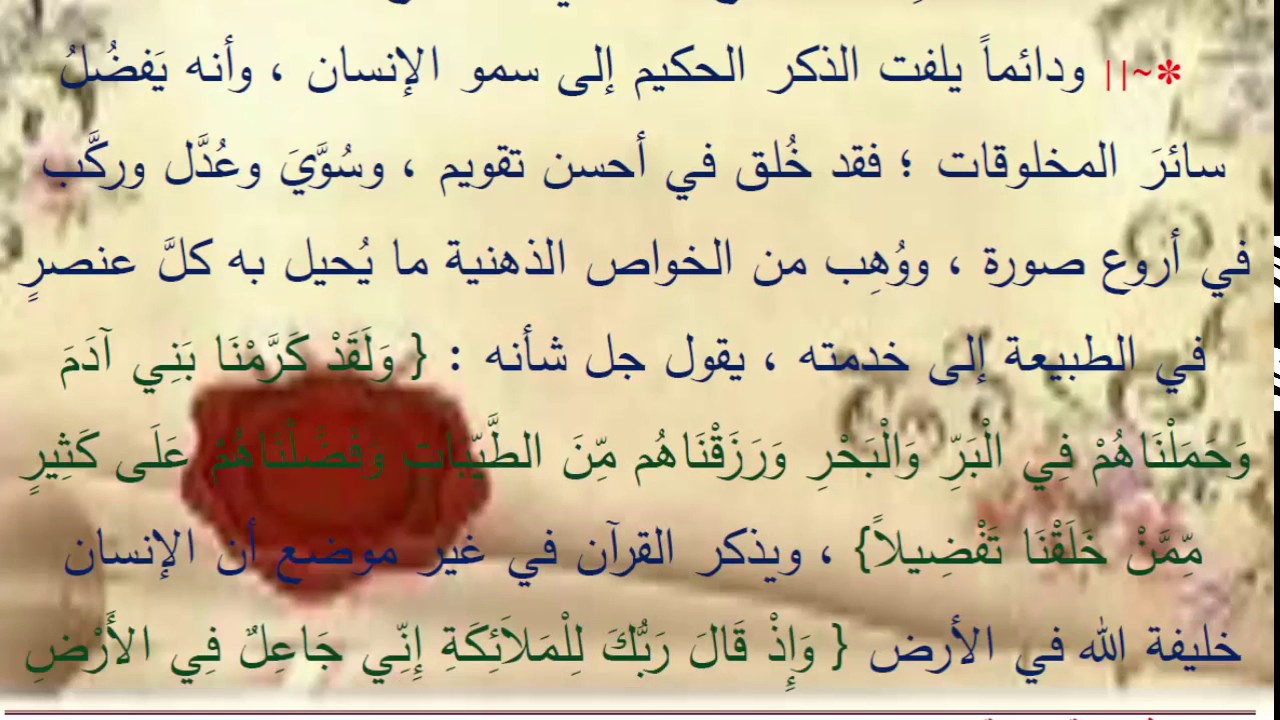 *~|| ودائماً يلفت الذكر الحكيم إلى سمو الإنسان ، وأنه يَفضُلُ
سائرَ المخلوقات ؛ فقد خُلق في أحسن تقويم ، وسُوَّيَ وعُدَّل وركَّب
في أروع صورة ، ووُهِب من الخواص الذهنية ما يُحيل به كلَّ عنصرٍ
في الطبيعة إلى خدمته ، يقول جل شأنه : { وَلَقَدْ كَرَّمْنَا بَنِي آدَمَ
وَحَمَلْنَاهُمْ فِي الْبَرِّ وَالْبَحْرِ وَرَزَقْنَاهُم مِّنَ الطَّيِّبَات وَفَضَّلْنَاهُمْ عَلَى كَثِيرٍ
مِّمَّنْ خَلَقْنَا تَفْضِيلاً} ، ويذكر القرآن في غير موضع أن الإنسان
خليفة الله في الأرض { وَإِذْ قَالَ رَبُّكَ لِلْمَلاَئِكَةِ إِنِّي جَاعِلٌ فِي الأَرْضِ